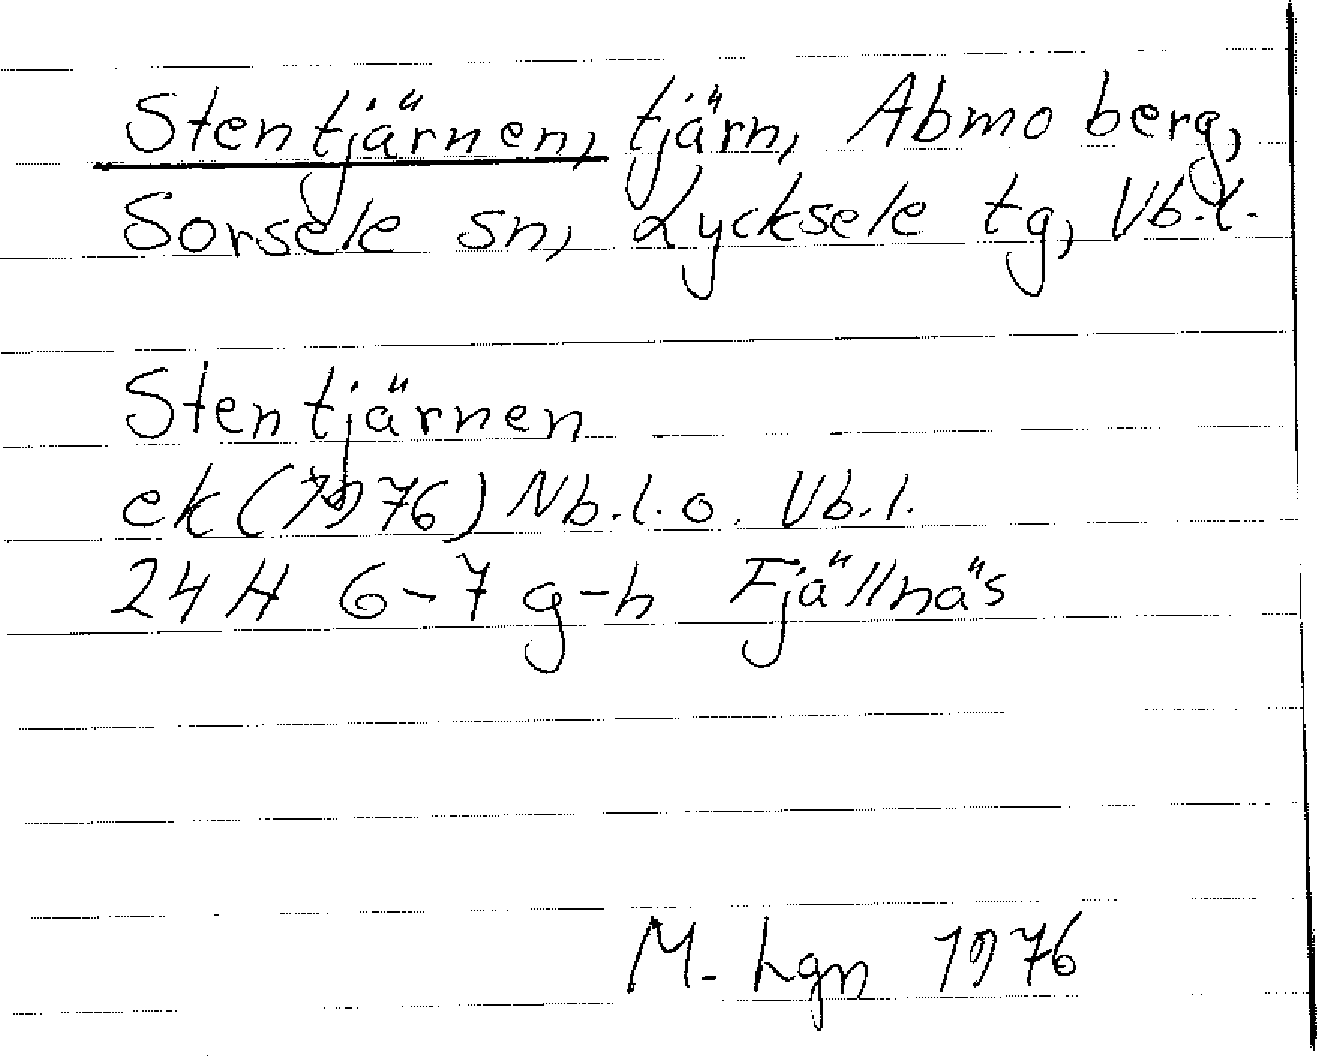 Stentjärnen, tjärn, Abmoberg,
Sorsele sn, Lycksele tg, Vb.l.
Stentjärnen
ek (1976) Nb.l. o. Vb.l.
24 H 6-7 g-h Fjällnäs
M. Lgn 1976